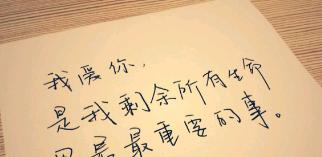 我爱你,
是我剩余所有生命
最重要的事。